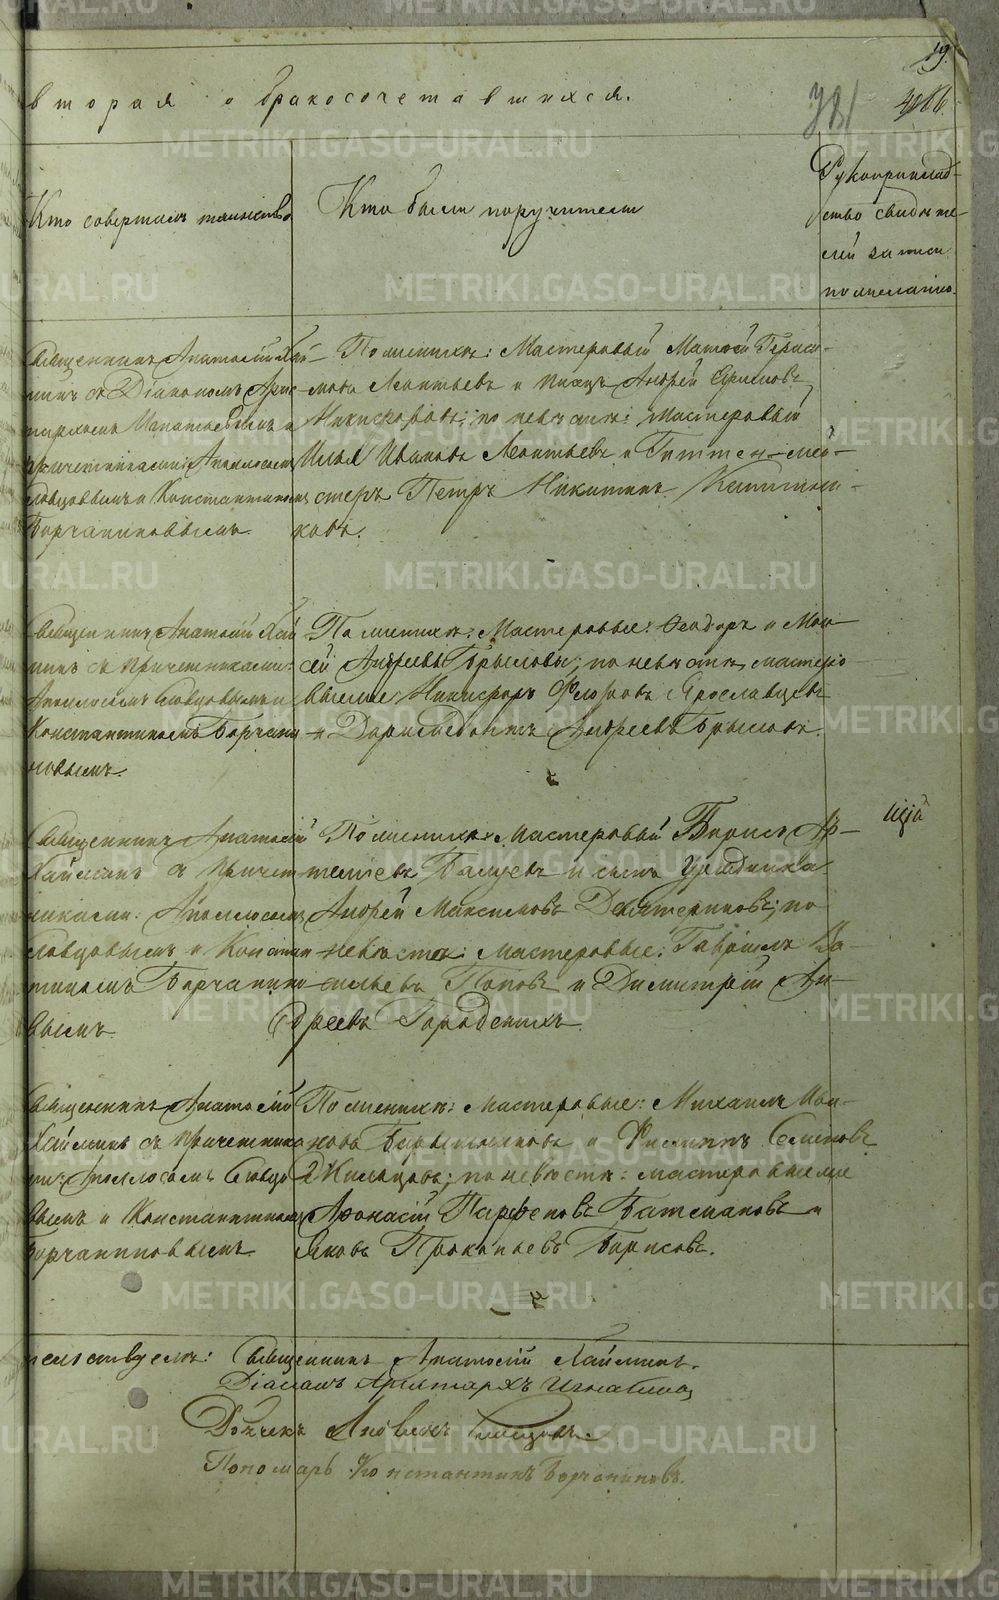 19.
вторая о бракосочетавшихся.
Кто совершалъ таинство
Кто были поручители
Рукоприклад-
ство свидѣте-
лей записи
по желанію.
Священникъ Анатолій Хай-
минъ съ Діакономъ Арис-
тархомъ Игнатьевымъ и
причетниками: Аполлосомъ
Словцовымъ и Константиномъ
Борчаниновымъ.
По женихѣ: Мастеровый Матвей Гераси-
мовъ Леонтьевъ и писецъ Андрей
Никифоровъ; по невѣстѣ: мастеровый
Илья Ивановъ Леонтьевъ и Гиттен-мей-
стеръ Петръ Никитинъ
ковъ.
Священникъ Анатолій Хай
минъ съ причетниками:
Аполлосомъ Словцовымъ и
Константиномъ Борчани
новымъ.
По женихѣ: Мастеровые: Ѳеодоръ и Мои-
сей Андреевы Брысловы; по невѣстѣ мастеро-
вые Никифоръ Фроловъ Ярославцевъ
и Андреевъ
Священникъ Анатолій
Хайминъ съ причет
никами: Аполлосомъ
Словцовымъ и Констан
тиномъ Борчанино
вымъ.
По женихѣ мастеровый Борисъ Ар-
темьевъ и сынъ Урядника
Андрей Максимовъ Дехтериновъ; по
невѣстѣ: мастеровые: Гавріилъ Ва-
сильевъ Поповъ и Димитрій Ан-
дреевъ Городскихъ.
Священникъ Анатолій
Хайминъ съ причетника
ми: Аполлосомъ Словцо
вымъ и Константиномъ
Борчаниновымъ.
По женихѣ: мастеровые: Михаилъ Ива-
новъ и Филиппъ Семеновъ
Жильцовъ; по невѣстѣ: мастеровые
Афонасій Парфеновъ Батмановъ и
Яковъ Прокопьевъ Борисовъ.
тельствуемъ: Священникъ Анатолій Хайминъ.
Діаконъ Аристархъ Игнатьевъ
Дьячекъ Аполлосъ Словцовъ.
Пономарь Константинъ Борчаниновъ.
METRIKI.GASO-URAL.RU